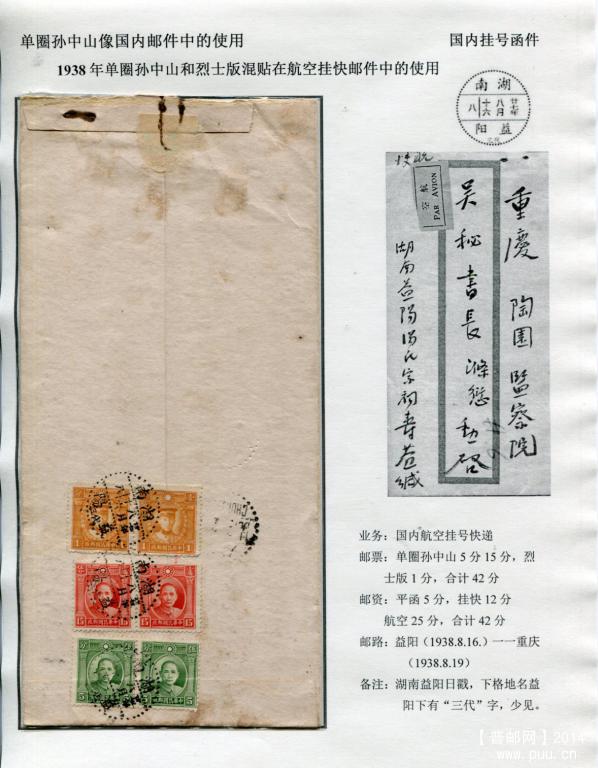 单圈孙中山像国内邮件中的使用 国内挂号函件
1938年单圈孙中山和烈士版混贴在航空挂快邮件中的使用
湖南
廿七年
八月
十六
八
益阳
航空
PAR AVION
重慶 陶園 監察院
吴秘書長
湖南益陽
業务: 国内航空挂号快递
邮票: 单圈孙中山5分15分,烈
士版1分,合计42分
邮资: 平函5分,挂快12分
航空25分,合计42分
邮路: 益阳(1938.8.16.)一一重庆
(1938.8.19)
备注: 湖南益阳日戳,下格地名益
阳下有“三代”字,少见。
【普邮网】2014
www.puu.cn